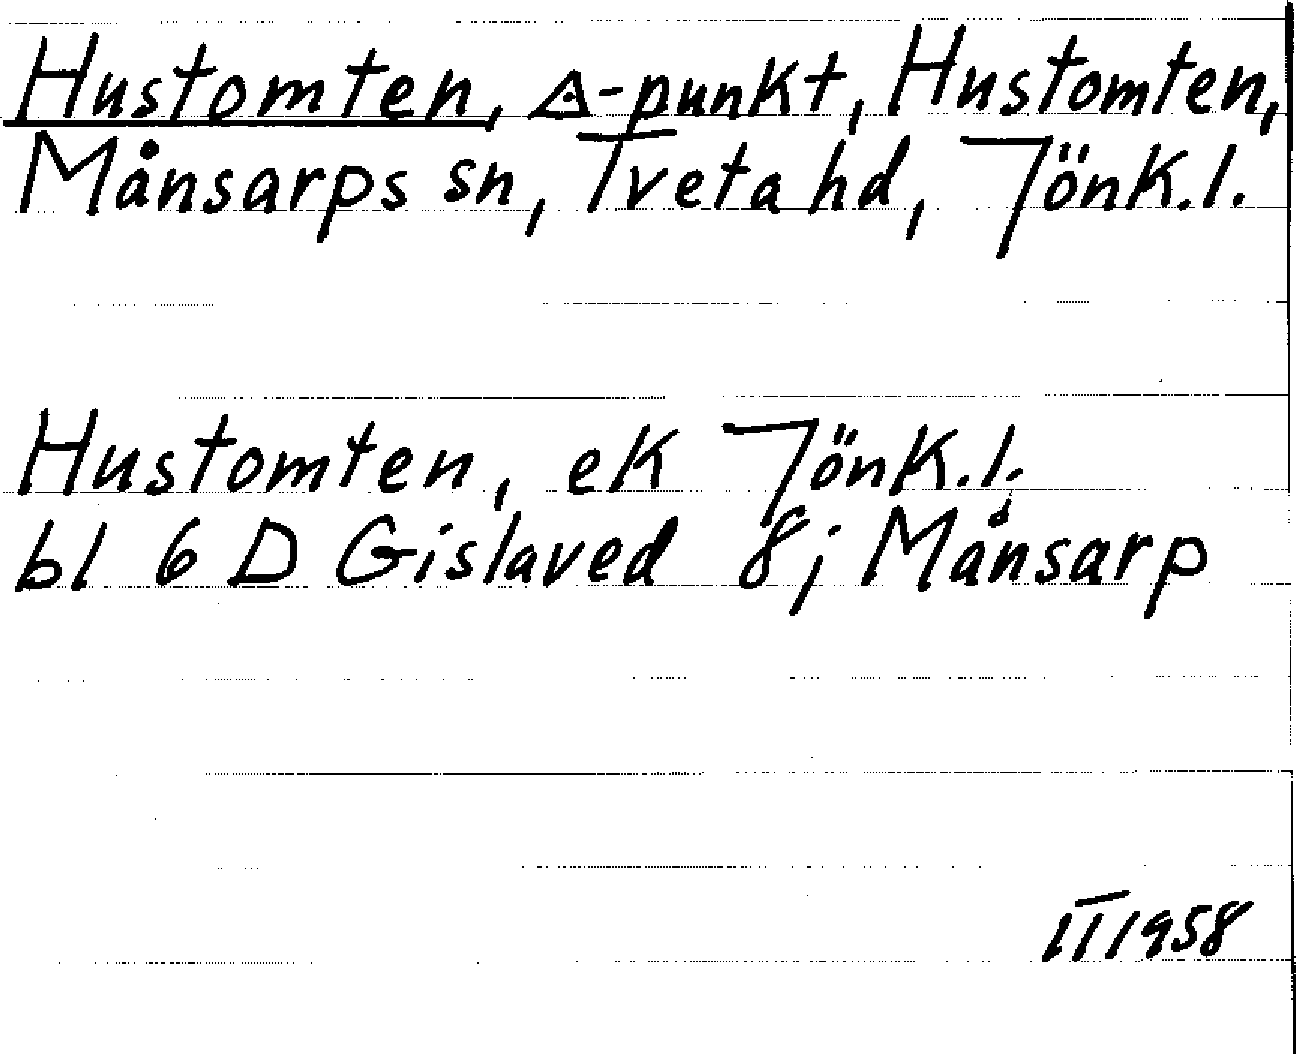 Hustomten, ◬-punkt, Hustomten,
Månsarps sn, Tveta hd, Jönk.l.
Hustomten, ek Jönk.l.
bl 6 D Gislaved 8j Månsarp
II 1958